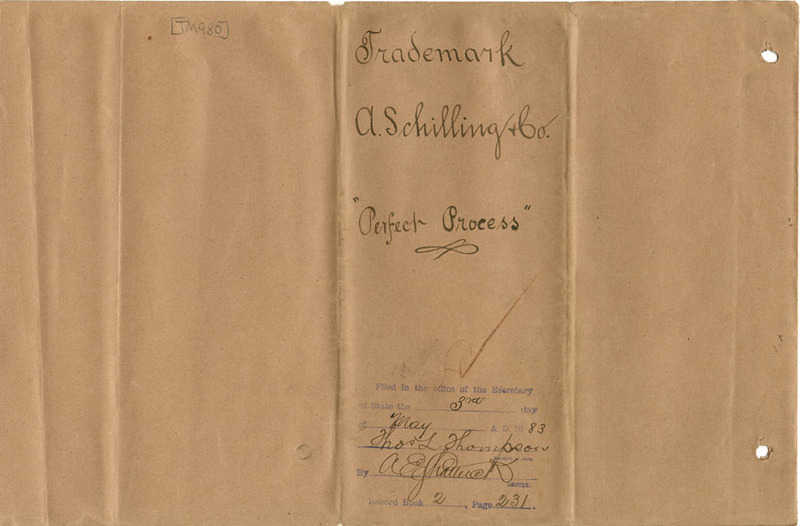 [TM980]
Trademark
A. Schilling & Co.
"Perfect Process"
Filed in the office of the Secretary
of State the 3rd day
of May A. D. 1883
Thos L Thompson
By A E Shattuck
DEPUTY.
Record Book 2, Page 231.